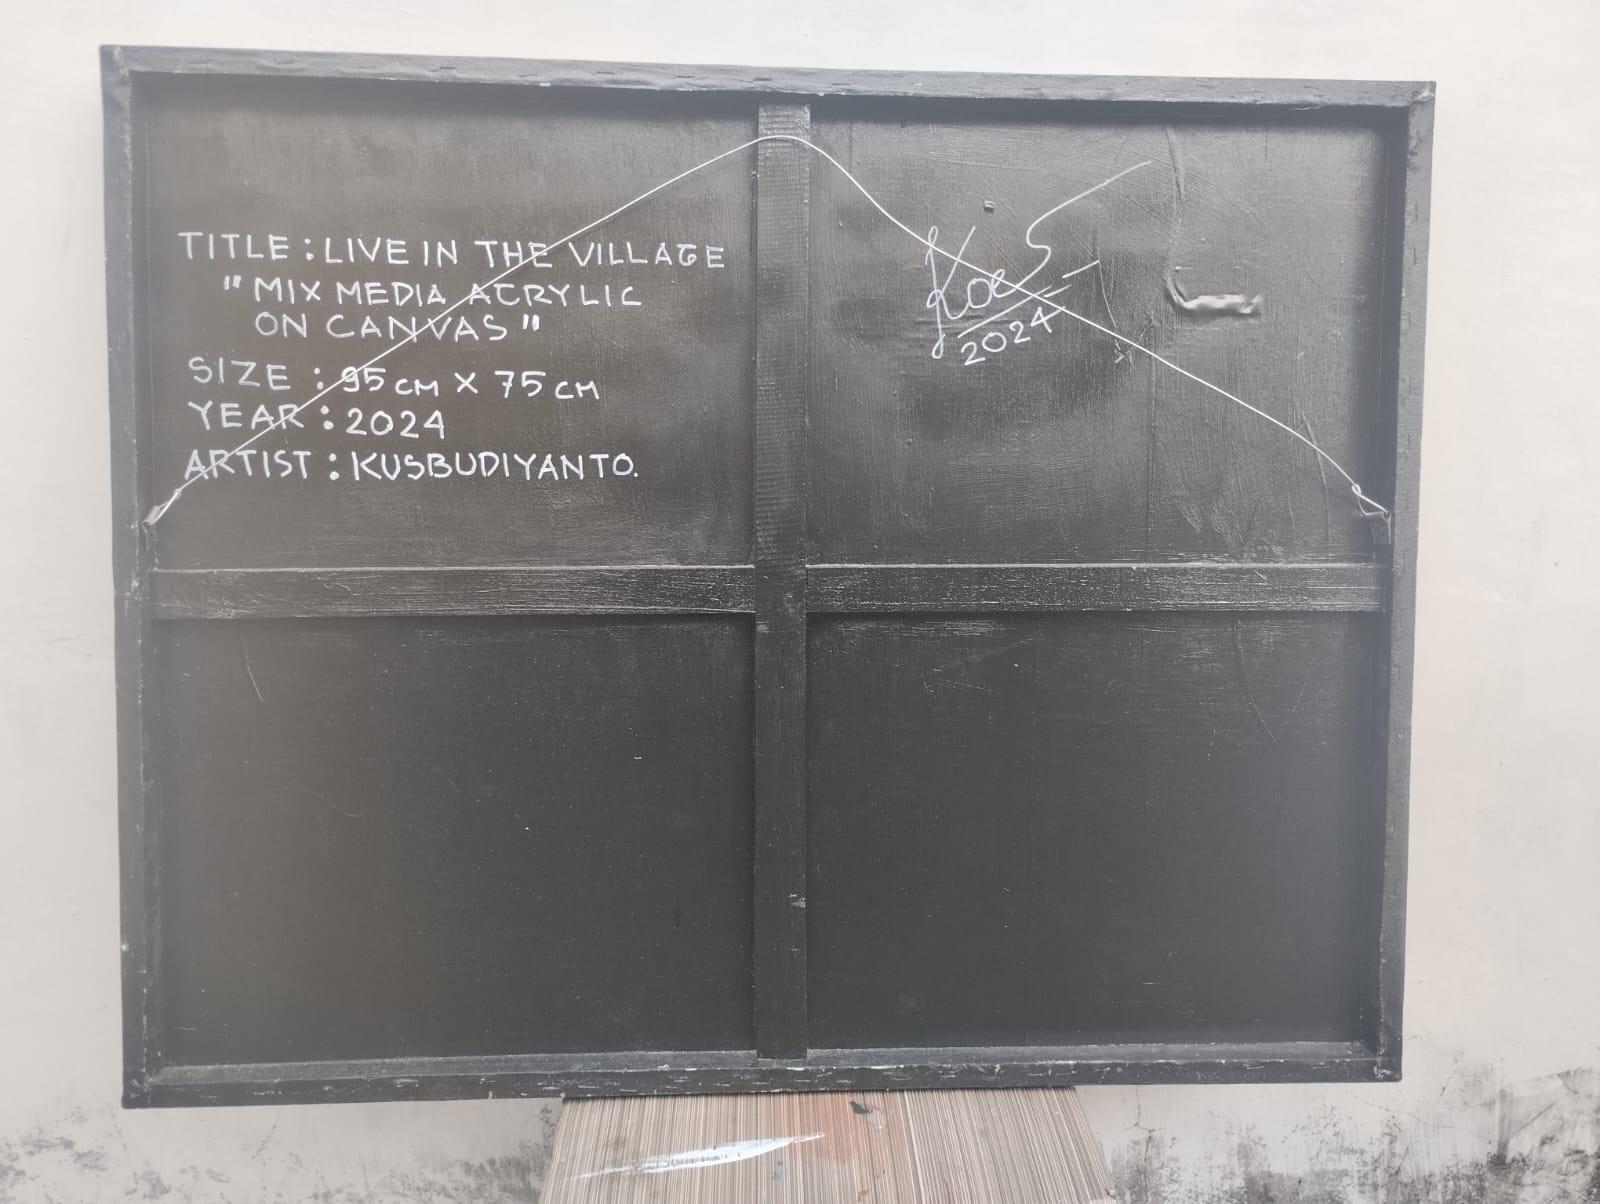 TITLE : LIVE IN THE VILLAGE
" MIX MEDIA ACRYLIC
ON CANVAS "
SIZE : 95 CM X 75 CM
YEAR : 2024
ARTIST : KUSBUDIYANTO.
Koes
2024